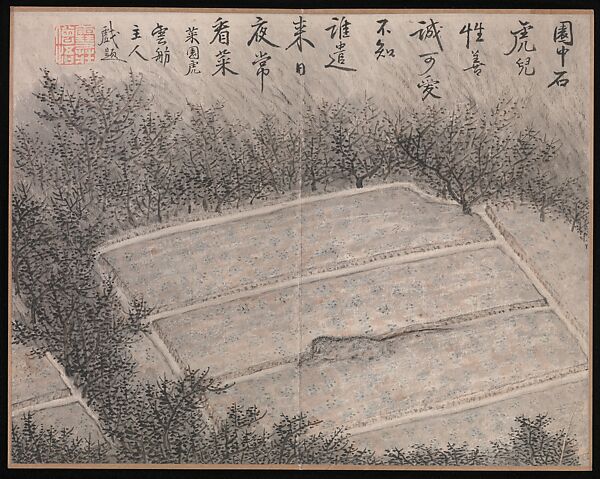 園中石
虎兒
性善
誠可愛
不知
誰遣
来日
夜常
看菜
菜園虎
雲舫
主人
戲題